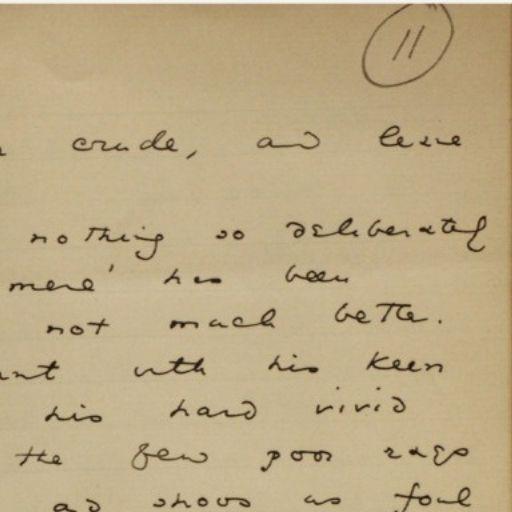 11
crude, and leave
nothing so deliberately
mere' has been
not much better.
with his keen
his hard vivid
the few poor rags
and shows us foul